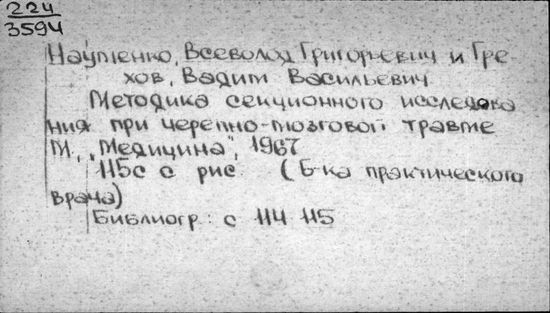 224
3594
Науменко, Всеволод Григорьевич и Гре-
хов, Вадим Васильевич
Методика секционного исследова
ния при черепно-мозговой травме
М, „Медицина", 1967
115с с рис. (Б-ка практического
врача)
Библиогр: с 114 115